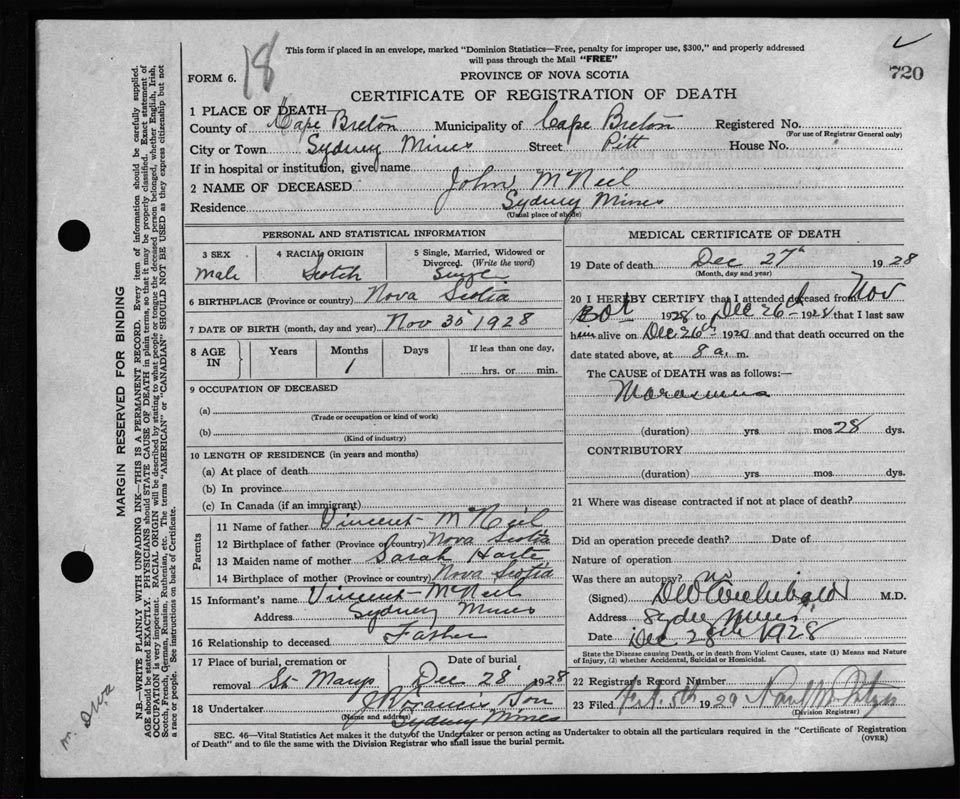 18
This form if placed in an envelope, marked "Dominion Statistics—Free, penalty for improper use, $300," and properly addressed
will pass through the Mail "FREE"
720
FORM 6.
PROVINCE OF NOVA SCOTIA
CERTIFICATE OF REGISTRATION OF DEATH
1 PLACE OF DEATH—
County of Cape Breton Municipality of Cape Breton Registered No.
(For use of Registrar General only)
City or Town Sydney Mines Street Pitt House No.
If in hospital or institution, give name
2 NAME OF DECEASED John McNeil
Residence Sydney Mines
(Usual place of abode)
PERSONAL AND STATISTICAL INFORMATION
3 SEX 4 RACIAL ORIGIN 5 Single, Married, Widowed or
Divorced. (Write the word)
Male Scotch Single
6 BIRTHPLACE (Province or country) Nova Scotia
7 DATE OF BIRTH (month, day and year) Nov 30 1928
8 AGE IN Years Months Days If less than one day,
1 hrs. or min.
9 OCCUPATION OF DECEASED
(a)
(Trade or occupation or kind of work)
(b)
(Kind of industry)
10 LENGTH OF RESIDENCE (in years and months)
(a) At place of death
(b) In province
(c) In Canada (if an immigrant)
Parents
11 Name of father Vincent McNeil
12 Birthplace of father (Province or country) Nova Scotia
13 Maiden name of mother Sarah
14 Birthplace of mother (Province or country) Nova Scotia
15 Informant's name Vincent McNeil
Address Sydney Mines
16 Relationship to deceased Father
17 Place of burial, cremation or Date of burial
removal St Marys Dec 28 1928
18 Undertaker Son
(Name and address) Sydney Mines
MEDICAL CERTIFICATE OF DEATH
19 Date of death Dec 27th 1928
(Month, day and year)
20 I HEREBY CERTIFY that I attended deceased from Nov
1928 to Dec 26th 1928 that I last saw
him alive on Dec 26th 1928 and that death occurred on the
date stated above, at 8 a. m.
The CAUSE of DEATH was as follows:—
Marasmus
(duration) yrs mos 28 dys.
CONTRIBUTORY
(duration) yrs. mos. dys.
21 Where was disease contracted if not at place of death?
Did an operation precede death? Date of
Nature of operation
Was there an autopsy? no
(Signed) Archibald M.D.
Address Sydney Mines
Date Dec 28th 1928
State the Disease causing Death, or in death from Violent Causes, state (1) Means and Nature
of Injury, (2) whether Accidental, Suicidal or Homicidal.
22 Registrar's Record Number
23 Filed Feb. 5th 1929
(Division Registrar)
SEC. 46—Vital Statistics Act makes it the duty of the Undertaker or person acting as Undertaker to obtain all the particulars required in the "Certificate of Registration
of Death" and to file the same with the Division Registrar who shall issue the burial permit.
(OVER)
MARGIN RESERVED FOR BINDING
N.B.—WRITE PLAINLY WITH UNFADING INK—THIS IS A PERMANENT RECORD. Every item of information should be carefully supplied.
AGE should be stated EXACTLY. PHYSICIANS should STATE CAUSE OF DEATH in plain terms, so that it may be properly classified. Exact statement of
OCCUPATION is very important. RACIAL ORIGIN will be described by stating to what people or tongue the deceased person belonged, whether English, Irish,
Scotch, French, German, Russian, Ruthenian, etc. The terms "AMERICAN" or "CANADIAN" SHOULD NOT BE USED as they express citizenship but not
a race or people. See instructions on back of Certificate.